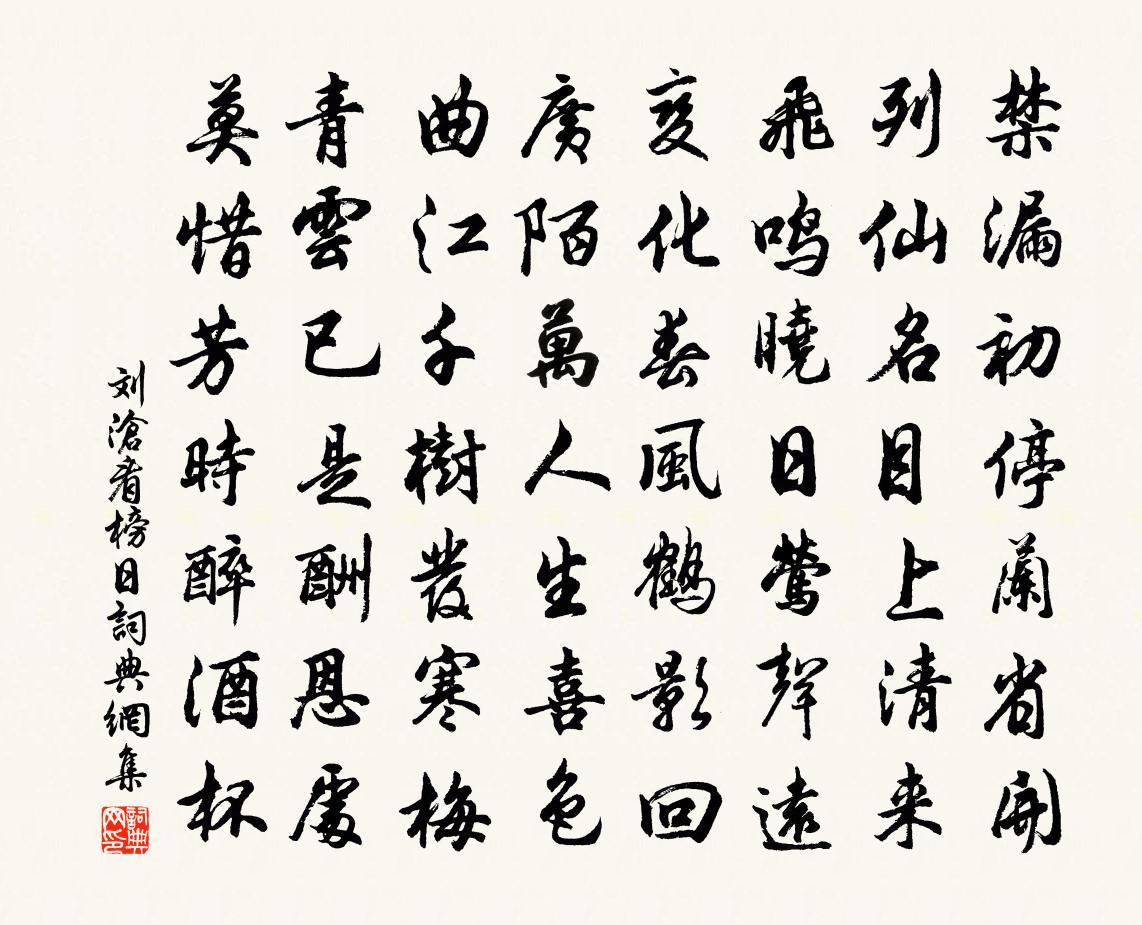 禁漏初停蘭省開
列仙名目上清来
飛鳴曉日鶯聲遠
变化春風鶴影回
廣陌萬人生喜色
曲江千樹發寒梅
青雲已是酬恩處
莫惜芳時醉酒杯
刘滄看榜日詞典網集
詞典网印